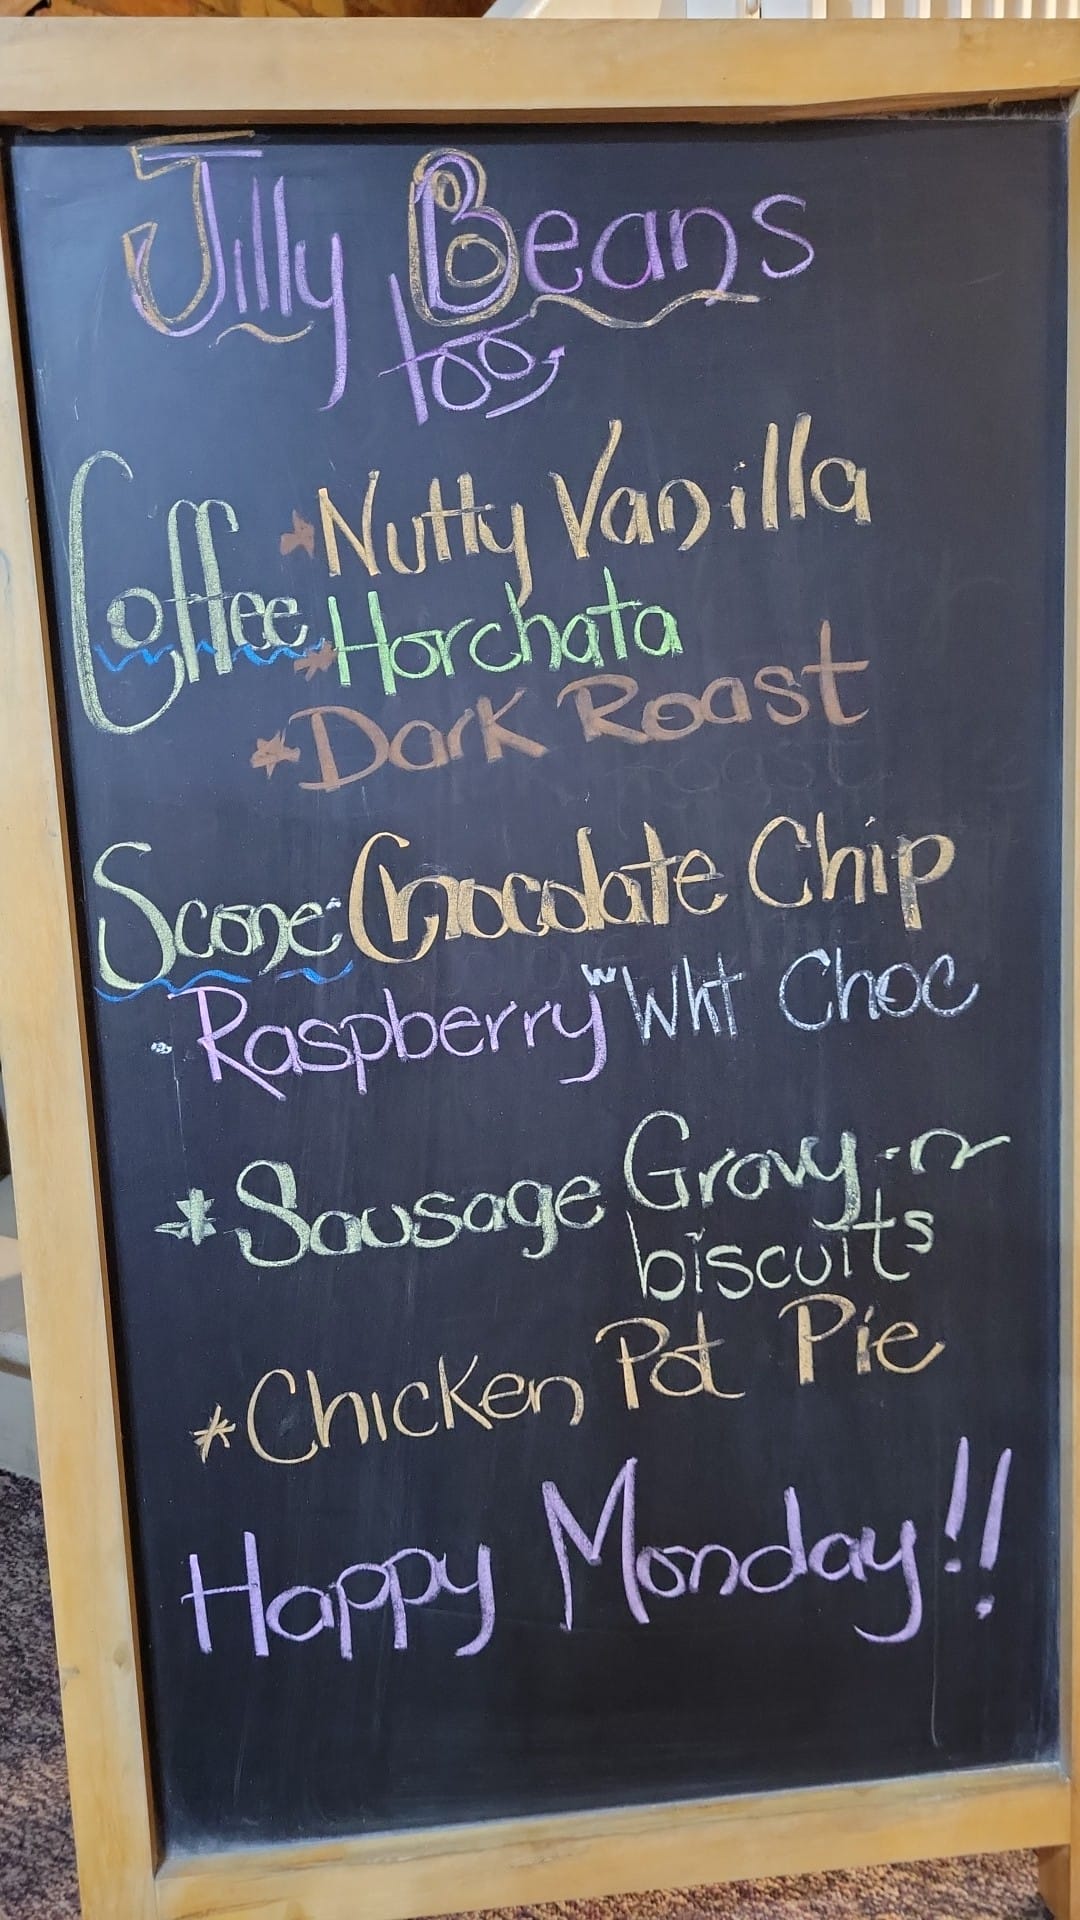 Jilly Beans
too
Coffee * Nutty Vanilla
* Horchata
* Dark Roast
Scone: Chocolate Chip
• Raspberry w Wht Choc
* Sausage Gravy -n-
biscuits
* Chicken Pot Pie
Happy Monday!!